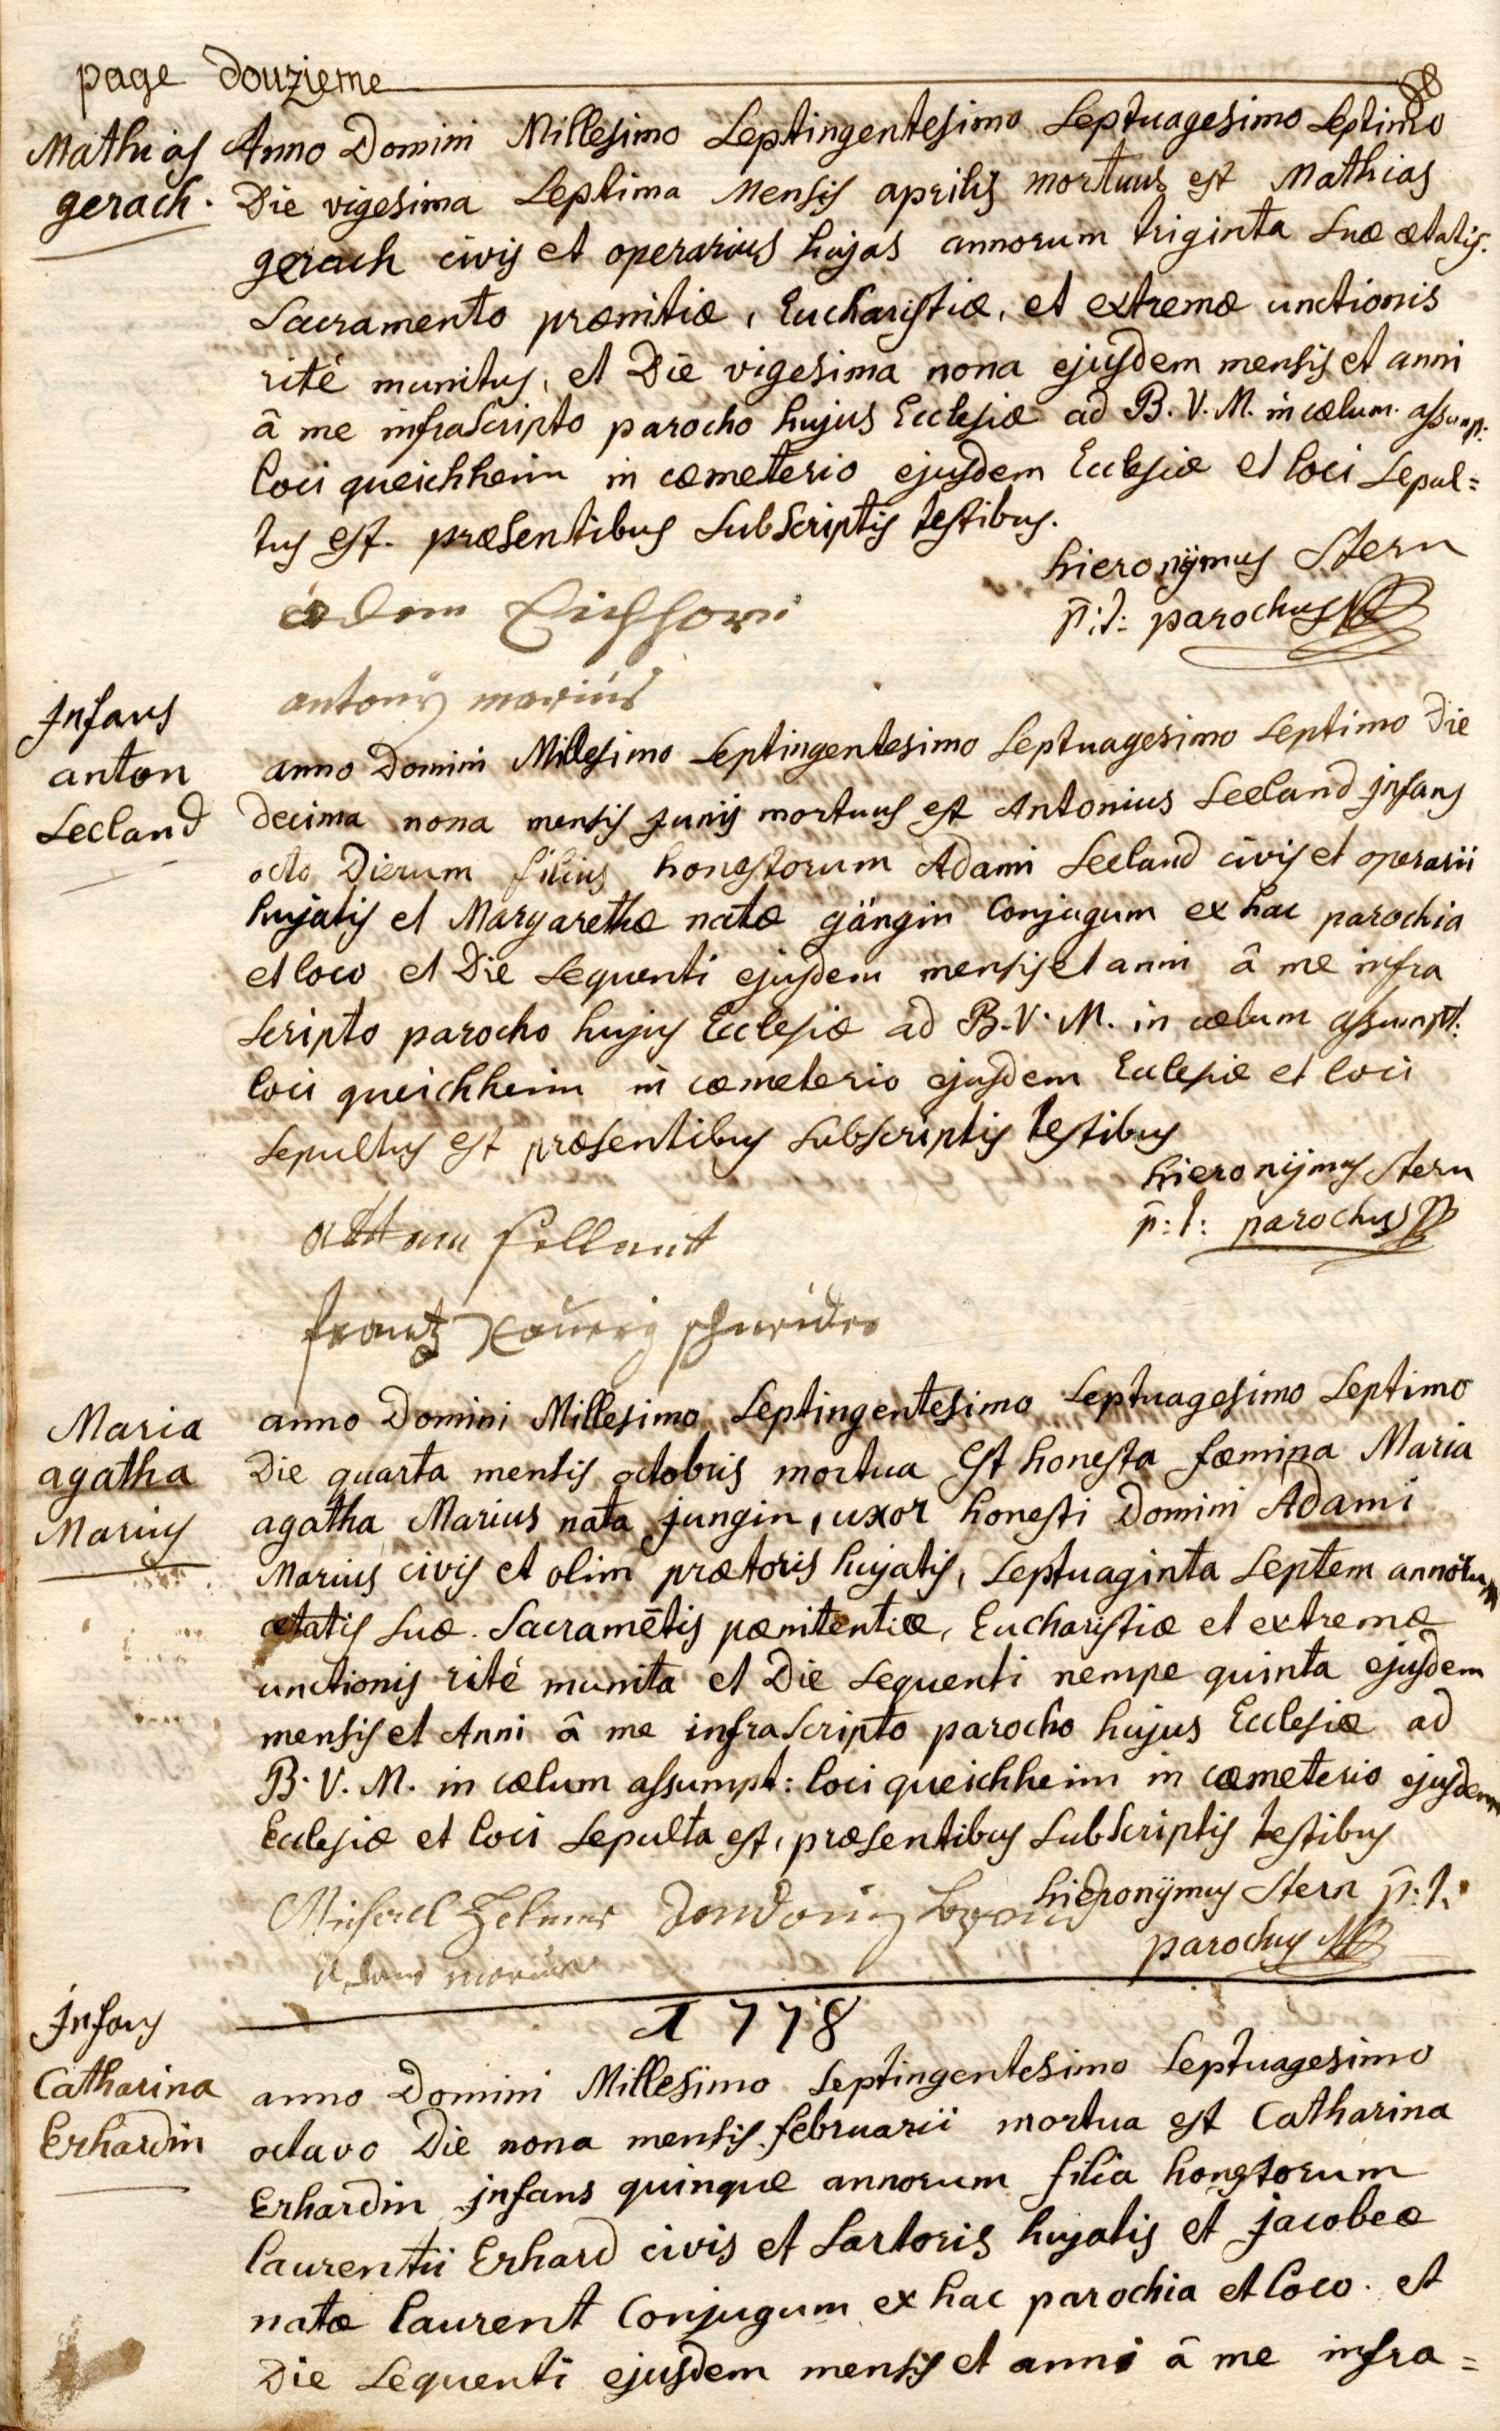 page douzieme
Mathias
gerach.
Anno Domini Millesimo Septingentesimo Septuagesimo Septimo
Die vigesima Septima Mensis aprilis mortuus est Mathias
gerach civis et operarius hujas annorum triginta Suæ ætatis.
Sacramento pænitiæ, Eucharistiæ, et extremæ unctionis
rité munitus, et Die vigesima nona ejusdem mensis et anni
â me infraScripto parocho hujus Ecclesiæ ad B. V. M. in cælum assumpt:
loci queichheim in cæmeterio ejusdem Ecclesiæ et loci Sepul=
tus est. præsentibus SubScriptis testibus.
hieronÿmus Stern
p:t: parochus
adam Eichhorn
antonÿ mariüs
jnfans
anton
Seeland
anno Domini Millesimo Septingentesimo Septuagesimo Septimo Die
decima nona mensis junij mortuus est Antonius Seeland jnfans
octo Dierum filius honestorum Adami Seeland civis et operarii
hujatis et Margarethæ natæ gängin Conjugum ex hac parochia
et loco et Die Sequenti ejusdem mensis et anni â me infra
Scripto parocho hujus Ecclesiæ ad B. V. M. in cælum assumpt:
loci queichheim in cæmeterio ejusdem Ecclesiæ et loci
Sepultus est præsentibus SubScriptis testibus
hieronijmus Stern
p:t: parochus
frantz Xaverig schneider
Maria
agatha
Marius
anno Domini Millesimo Septingentesimo Septuagesimo Septimo
Die quarta mensis octobris mortua Est honesta fæmina Maria
agatha Marius nata jungin, uxor honesti Domini Adami
Marius civis et olim prætoris hujatis, Septuaginta Septem annorum
ætatis Suæ. Sacramētis pænitentiæ, Eucharistiæ et extremæ
unctionis rité munita et Die Sequenti nempe quinta ejusdem
mensis et Anni â me infraScripto parocho hujus Ecclesiæ ad
B. V. M. in cælum assumpt: loci queichheim in cæmeterio ejusdem
Ecclesiæ et loci Sepulta est, præsentibus SubScriptis testibus
hieronÿmus Stern p:t:
parochus
Michael
Adam marius
1778
jnfans
Catharina
Erhardin
anno Domini Millesimo Septingentesimo Septuagesimo
octavo Die nona mensis februarii mortua est Catharina
Erhardin jnfans quinque annorum filia honestorum
laurentii Erhard civis et Sartoris hujatis et jacobeæ
natæ laurent Conjugum ex hac parochia et loco. et
Die Sequenti ejusdem mensis et anni â me infra=